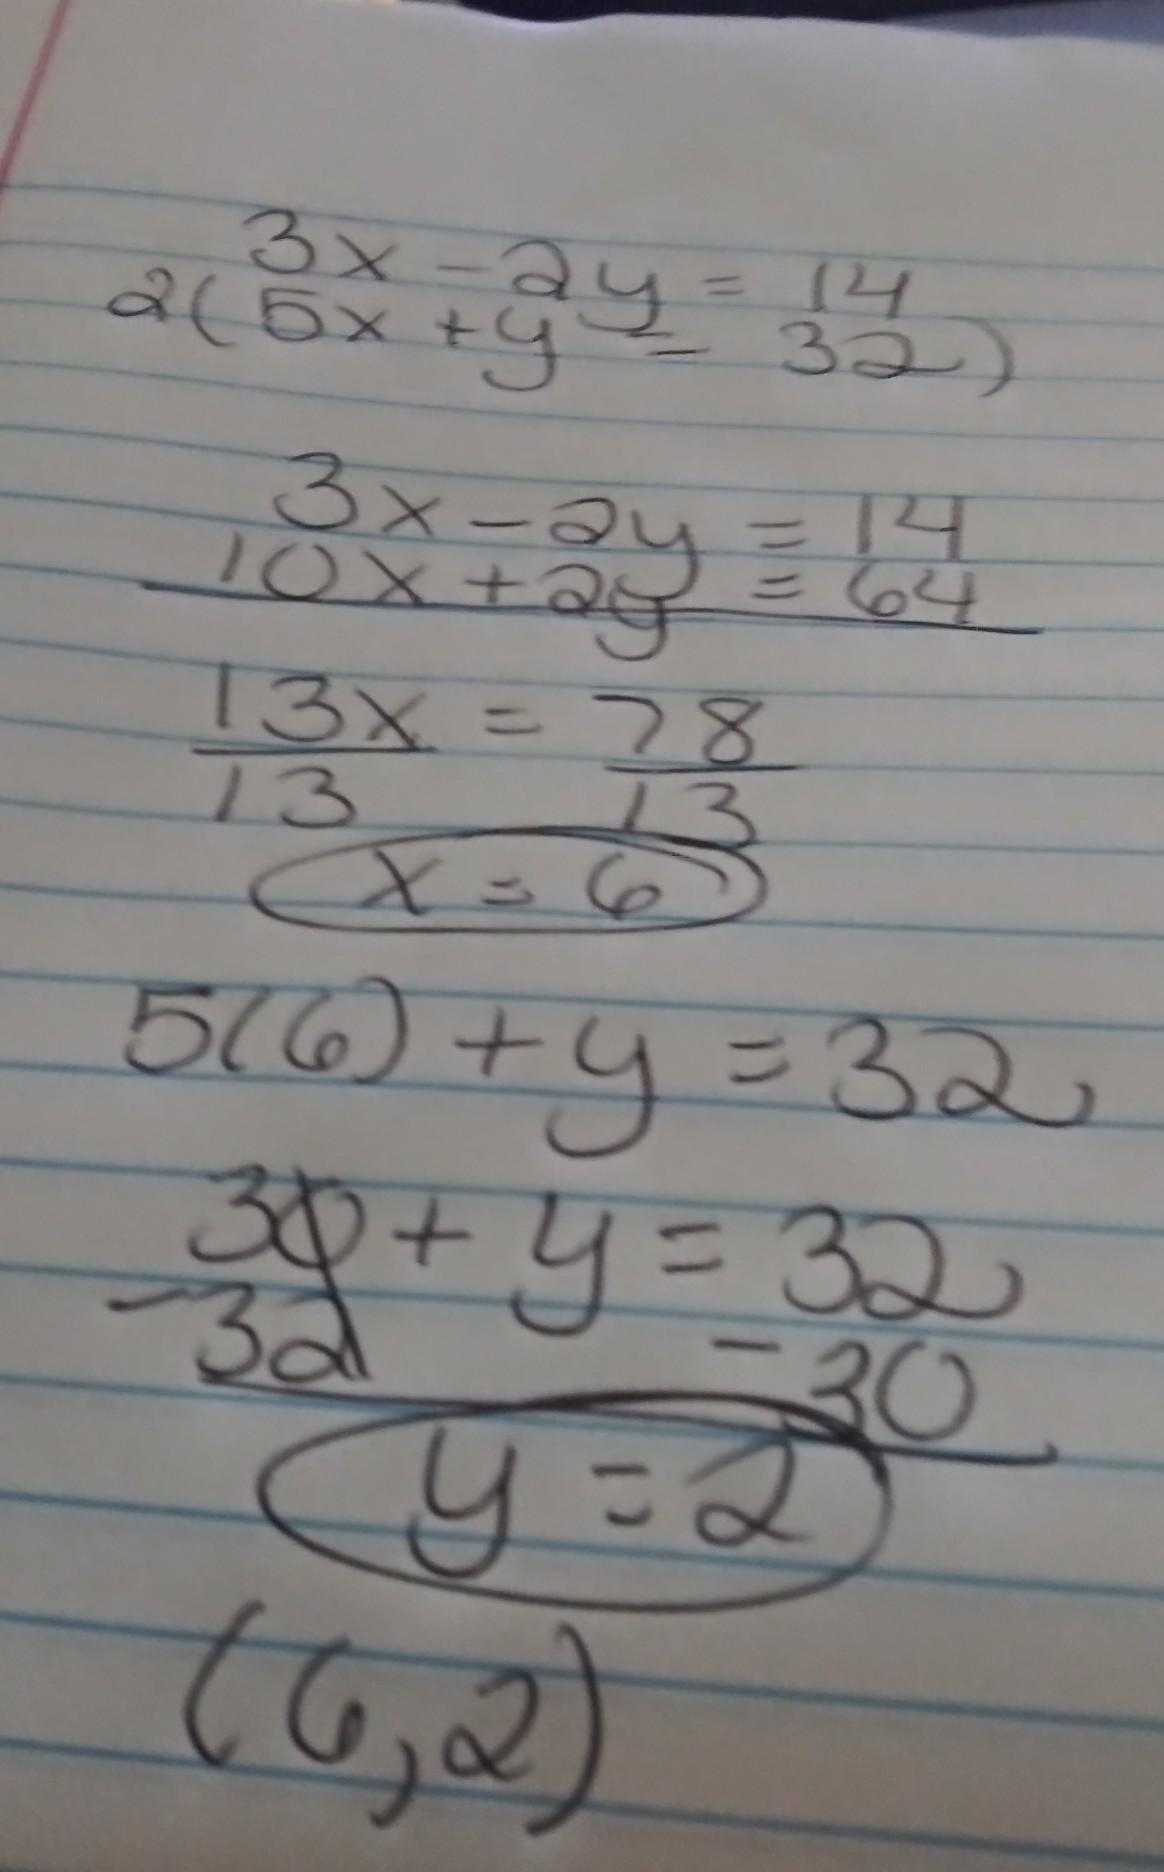 3x - 2y = 14
2(5x + y = 32)
3x - 2y = 14
10x + 2y = 64
13x = 78
13 13
x = 6
5(6) + y = 32
30 + y = 32
-32 -30
y = 2
(6,2)